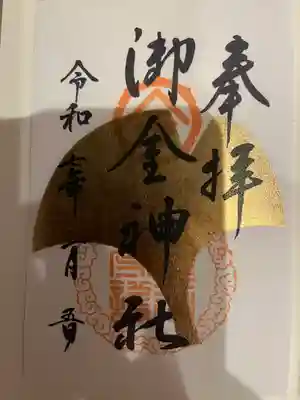 奉拝
御金神社
令和七年 月五日